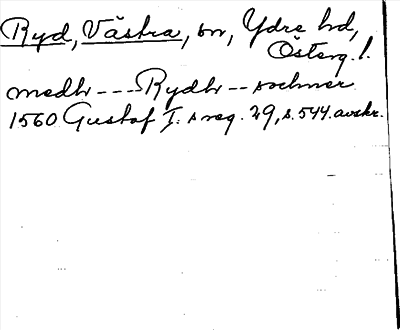 Ryd, Västra, sn, Ydre hd,
Österg. l.
medh --- Rydh -- sochner
1560 Gustaf I:s reg. 29, s. 544. avskr.